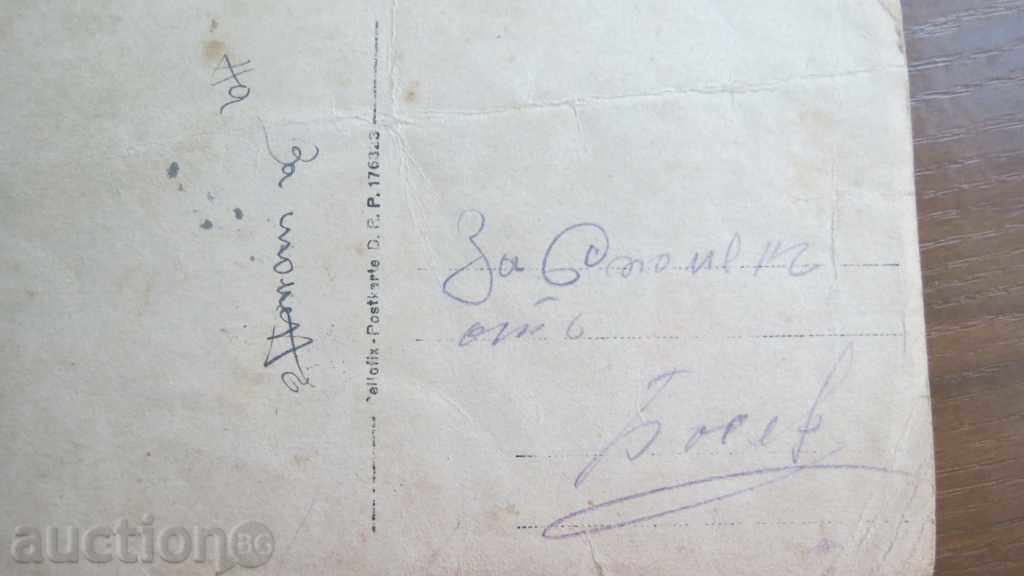 На
за
Cellofix - Postkarte D. R. P. 176323
За Споменъ
отъ
Босев
auction BG